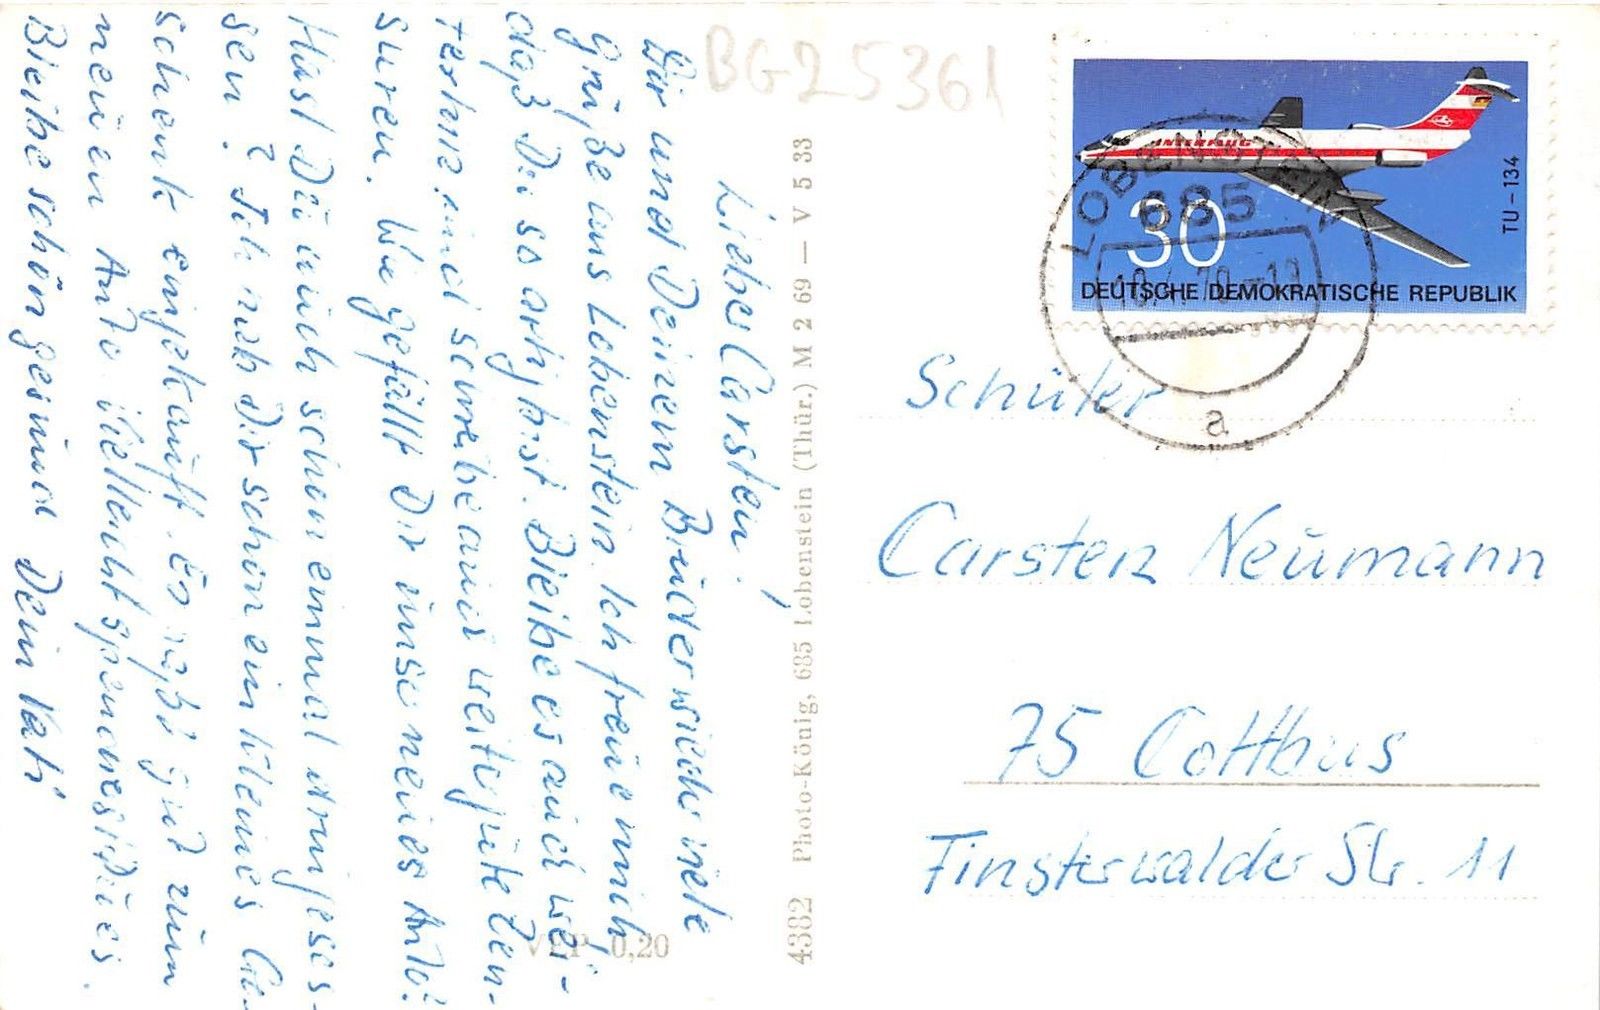 BG25361
INTERFLUG
TU-134
30
DEUTSCHE DEMOKRATISCHE REPUBLIK
LOBENSTEIN
685
a
Lieber Carsten!
Dir und Deinem Bruder wieder viele
Grüße aus Lobenstein. Ich freue mich
daß Du so artig bist. Bleibe es auch wei-
terhin und schreibe auch weiter gute Zen-
suren. Wie gefällt Dir unser neues Auto?
Hast Du auch schon einmal drin geses-
sen? Ich hab Dir schon ein kleines Ge-
schenk eingekauft. Es paßt gut zum
neuen Auto. Vielleicht sogar
Bleibe schön gesund Dein Vati
VEP 0,20
4382 Photo-König, 685 Lobenstein (Thür.) M 2 69 — V 5 33
Schüler
Carsten Neumann
75 Cottbus
Finsterwalder Str. 11